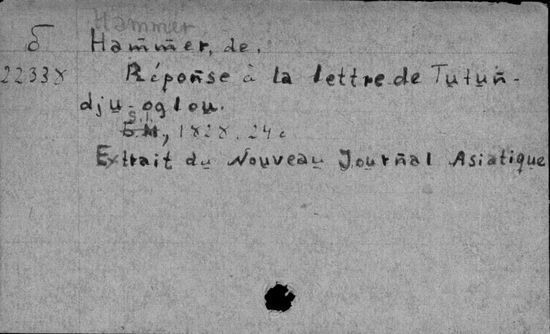 Hammer
б Hammer, de.
22338 Réponse à la lettre de Tutun-
dju-oglou.
S.l.
БМ, 1828. 24 с
Extrait du Nouveau Journal Asiatique